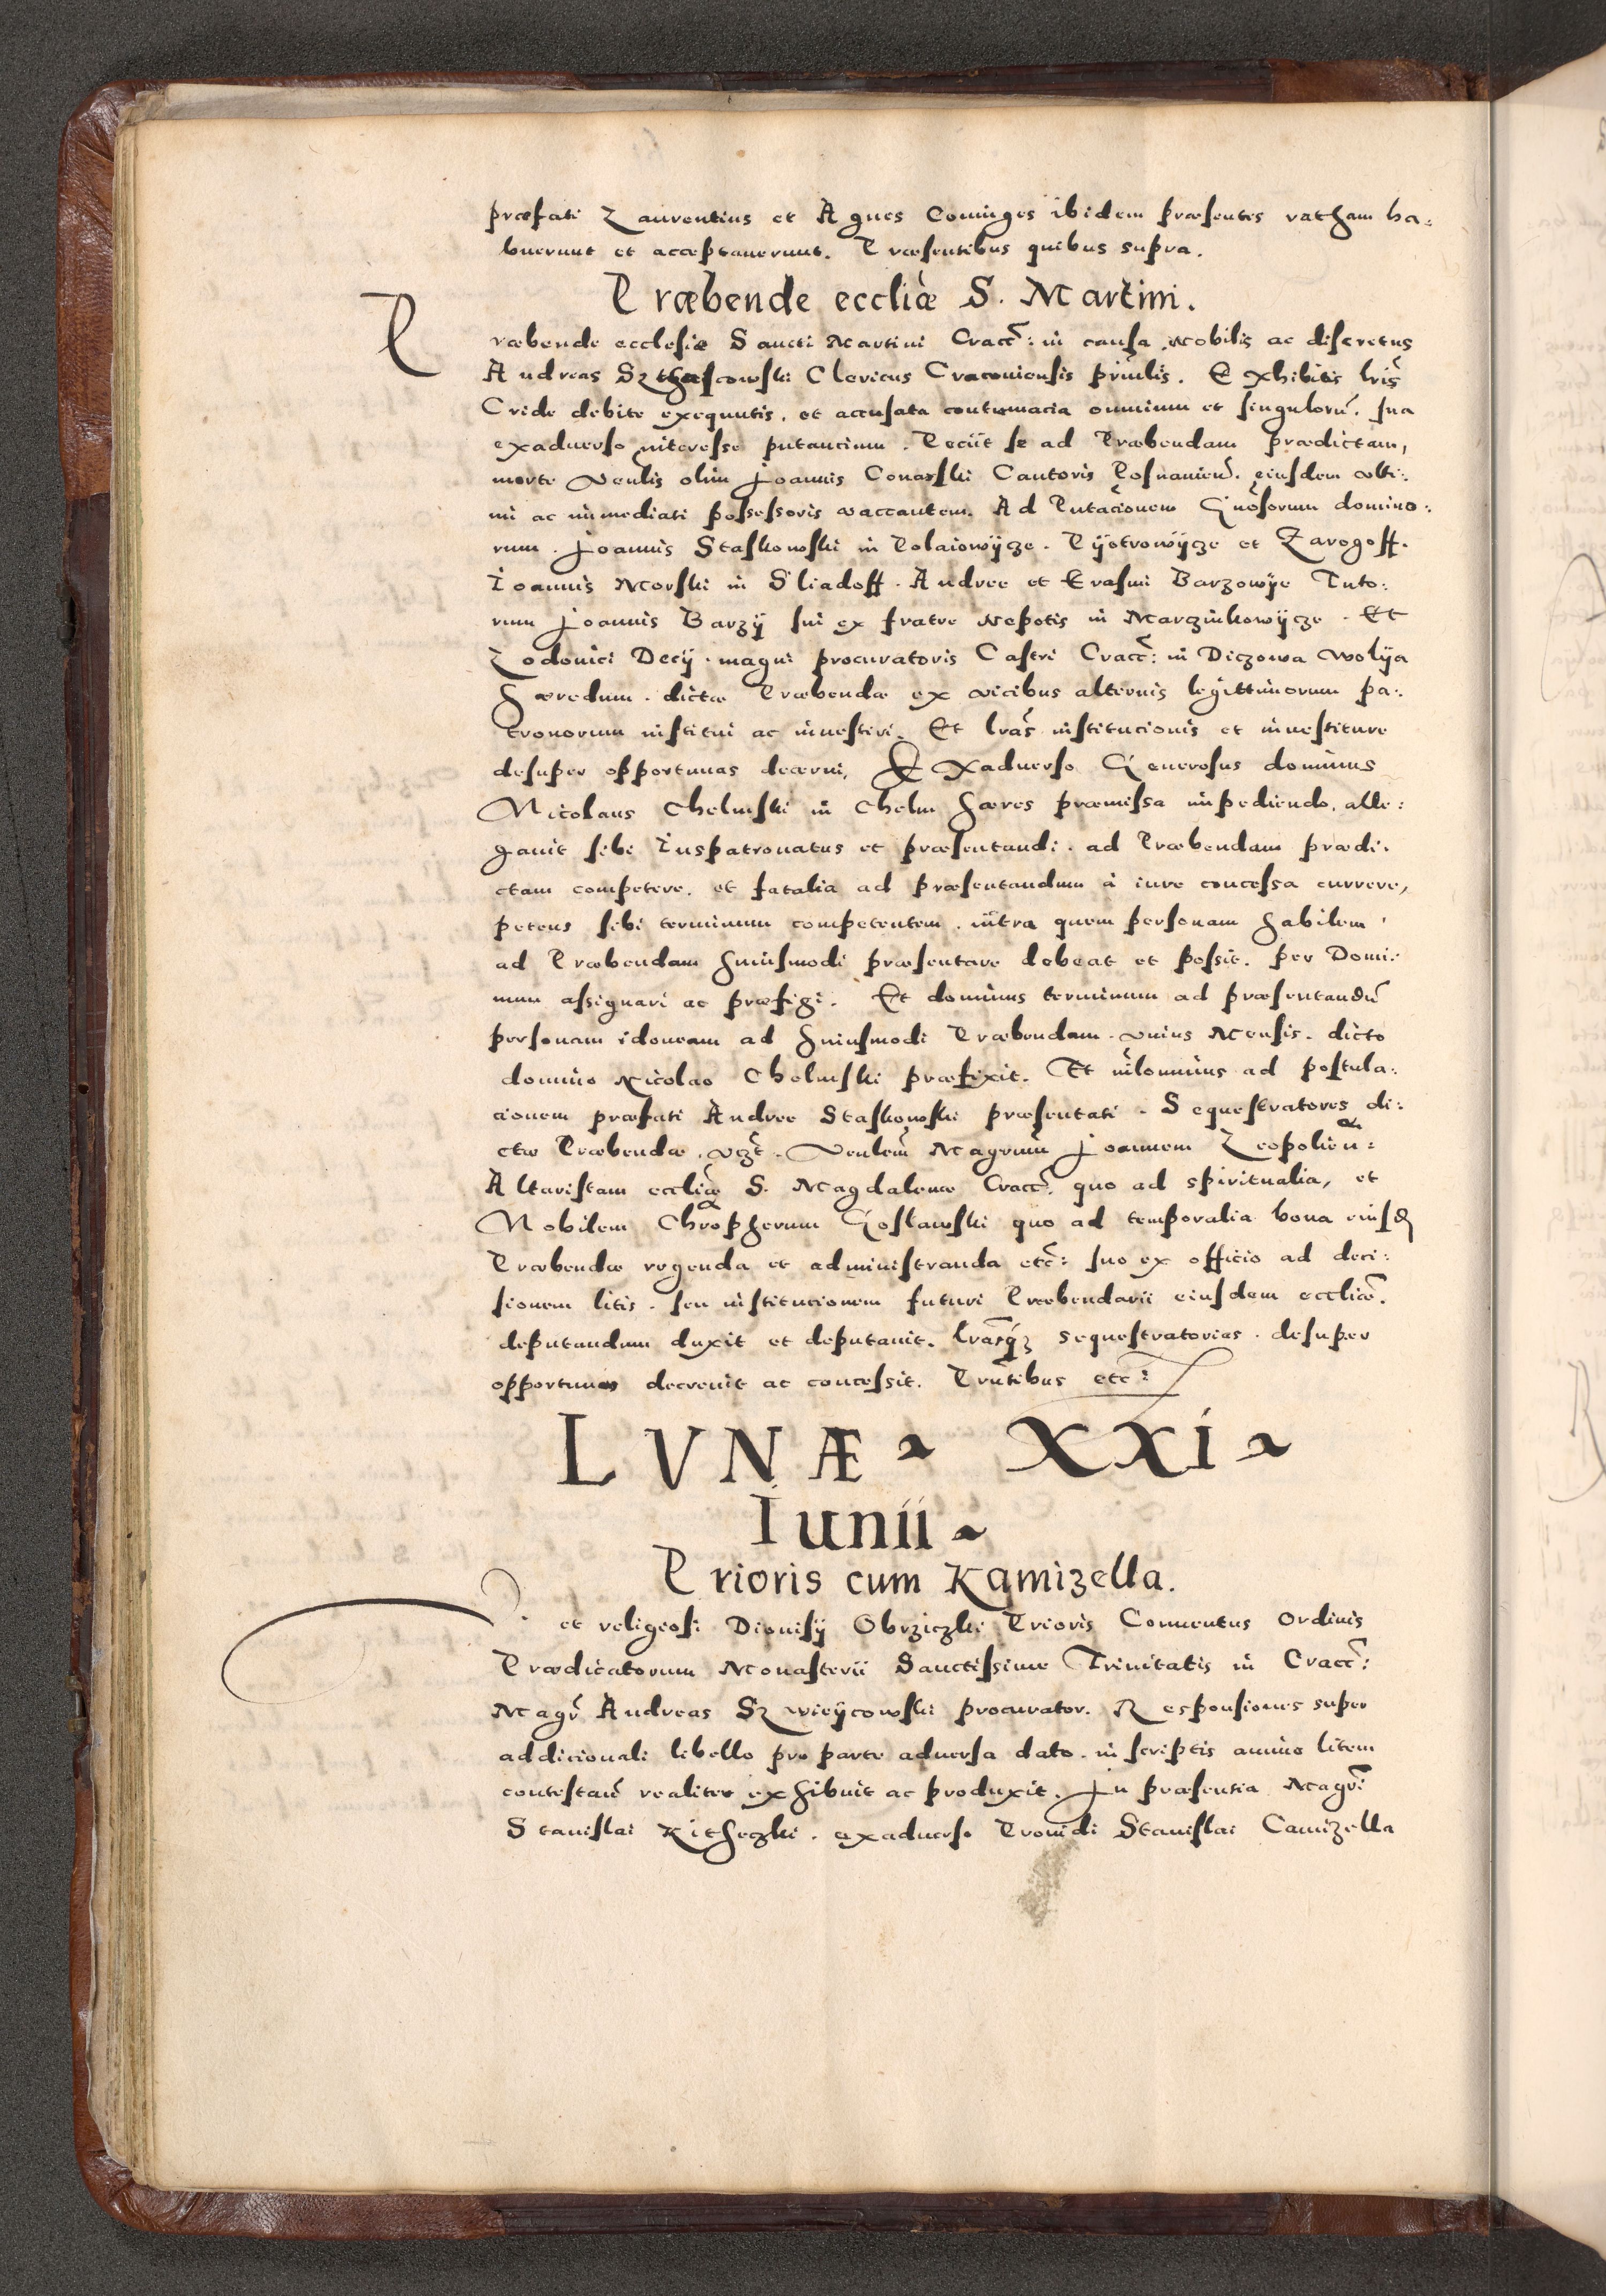 præfati Laurentius et Agnes Coniuges ibidem præsentes ratham ha:
buerunt et acceptauerunt. Præsentibus quibus supra.
Præbende eccliæ S. Martini.
Præbende ecclesiæ Sancti Martini Cracc: in causa. Nobilis ac discretus
Andreas Clericus Cracouiensis priuilis. Exhibitis lris
Cride debite exequutis. et accusata contumacia omnium et singuloru. sua
exaduerso interesse putancium. Peciit se ad Præbendam prædictam,
morte Venlis olim Joannis Conarski Cantoris Posnanien. eiusdem vlti:
mi ac immediati possessoris vaccantem. Ad Pntacionem Gnosorum domino:
rum. Joannis Staskowski in Polaiowycze. Pyotrowycze et Zarogoff.
Ioannis Morski in Sliadoff. Andree et Erasmi Barzowye Tuto:
rum Joannis Barzy sui ex fratre Nepotis in Marczinkowycze. Et
Lodouici Decij. magni procuratoris Castri Cracc: in Diczowa Wolya
Hæredum. dictæ Præbendæ ex vicibus alternis legittimorum pa:
tronorum institui ac inuestiri. Et lras institucionis et inuestiture
desuper opportunas decerni, Exaduerso Generosus dominus
Nicolaus Chelmski in Chelm Hæres præmissa impediendo. alle:
gauit sibi Iuspatronatus et præsentandi. ad Præbendam prædi.
ctam competere. et fatalia ad præsentandum à iure concessa currere,
petens sibi terminum competentem. intra quem personam habilem
ad Præbendam huiusmodi præsentare debeat et possit. per Domi:
num assignari ac præfigi. Et dominus terminum ad præsentandu
personam idoneam ad huiusmodi Præbendam. vnius Mensis. dicto
domino Nicolao Chelmski præfixit. Et nilominus ad postula:
cionem præfati Andree Staskowski præsentati. Sequestratores di:
ctæ Præbendæ. vczt. Venlem Magrum Joannem Leopolien:
Altaristam eccliæ S. Magdalenæ Cracc. quo ad spiritualia, et
Nobilem Chropherum Goslawski quo ad temporalia bona eiusd
Præbendæ regenda et administranda etc: suo ex officio ad deci:
sionem litis. seu institucionem futuri Præbendarii eiusdem eccliæ.
deputandum duxit et deputauit. lrasq sequestratorias. desuper
opportunas decreuit ac concessit. Pntibus etc:
LVNÆ XXI
Iunii
Prioris cum Kamizella.
et religiosi Dionisij Obrziczki Prioris Conuentus Ordinis
Prædicatorum Monasterii Sanctissime Trinitatis in Cracc:
Magr Andreas procurator. Responsiones super
addicionali libello pro parte aduersa dato. in scriptis animo litem
contestan realiter exhibuit ac produxit. In præsentia Magri
Stanislai Kitheczki. exaduerso Prouidi Stanislai Camizella